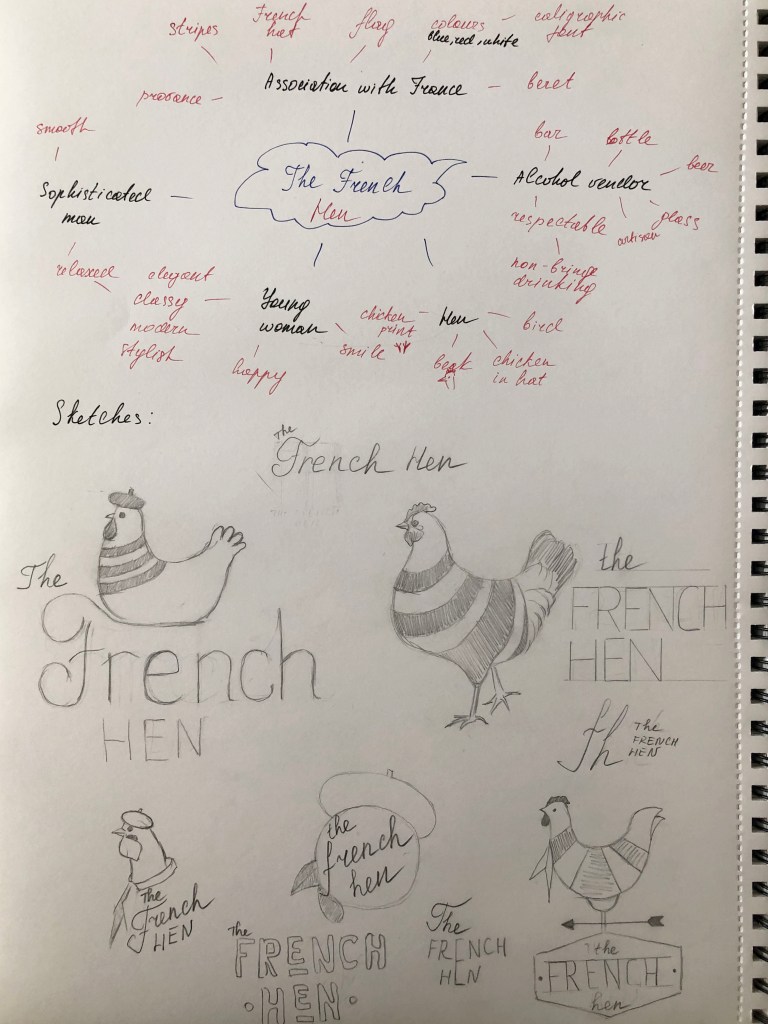 stripes
French
hat
flag
colours
blue, red, white
caligraphic
font
provance
Association with France
beret
smooth
The French
Hen
bar
bottle
beer
Alcohol vendor
glass
artison
respectable
non-bringe
drinking
Sophisticated
man
relaxed
elegant
classy
modern
stylish
Young
woman
happy
smile
chicken
print
Hen
bird
beak
chicken
in hat
Sketches:
The
French Hen
The
French
HEN
the
FRENCH
HEN
fh
The
FRENCH
HEN
The
French
HEN
the
french
hen
The
FRENCH
HEN
The
FRENCH
HEN
the
FRENCH
hen